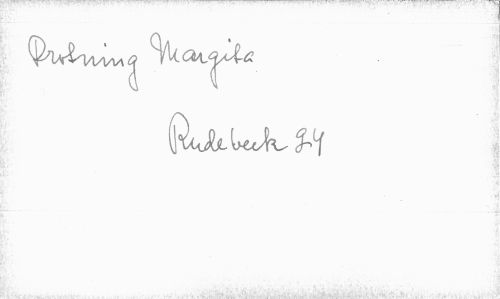 Drotning Margita
Rudebeck 24